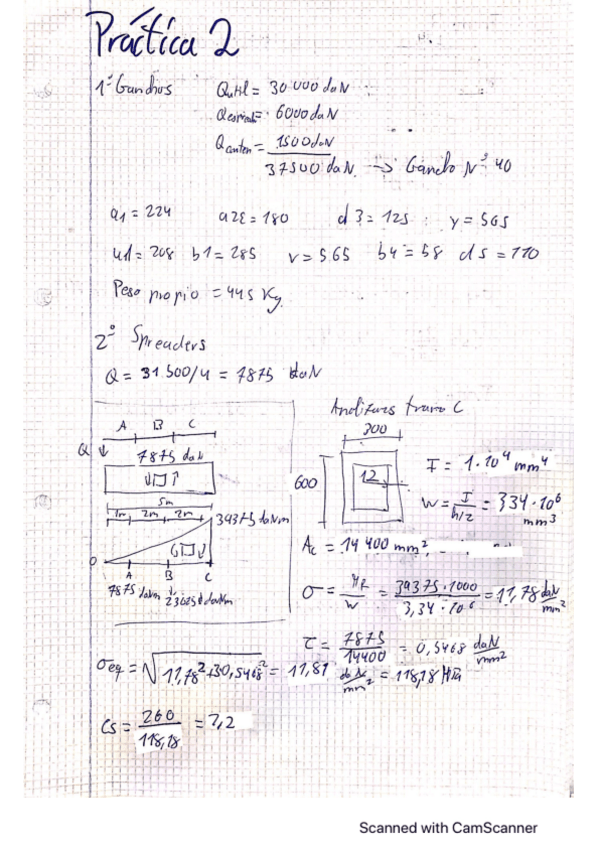 Práctica 2
1º Ganchos Qutil = 30 000 daN
Qespread = 6000 daN
Qconten = 1500 daN
37500 daN → Gancho Nº 40
a1 = 224 a2 = 180 d3 = 125 y = 565
u1 = 208 b1 = 285 v = 5.65 b4 = 58 d5 = 110
Peso propio = 445 Kg.
2º Spreaders
Q = 31 500/4 = 7875 daN
Analizas tramo C
A B C
Q
7875 daN
5m
1m 2m 2m
39375 daNm
0 A B C
7875 daNm 23625 daNm
300
600
12
I = 1·10⁴ mm⁴
W = I / h/2 = 334·10⁶ mm³
Ac = 14 400 mm²
σ = MF / W = 39375·1000 / 3,34·10⁶ = 11,78 daN/mm²
τ = 7875 / 14400 = 0,5468 daN/mm²
σeq = √11,78² + 30,5468² = 11,81 daN/mm² = 118,18 MPa
Cs = 260 / 118,18 = 2,2
Scanned with CamScanner